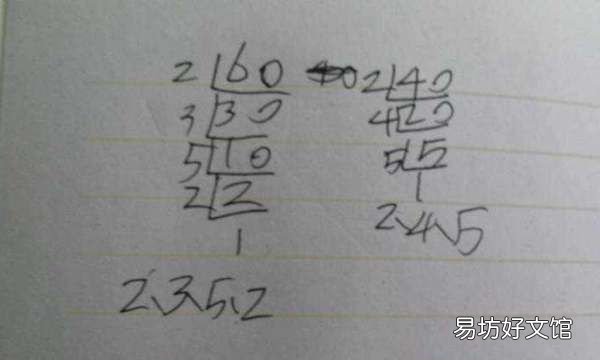 2 60 2 40
3 30 4 20
5 10 5 5
2 2 1
1 2、4、5
2、3、5、2
易坊好文馆